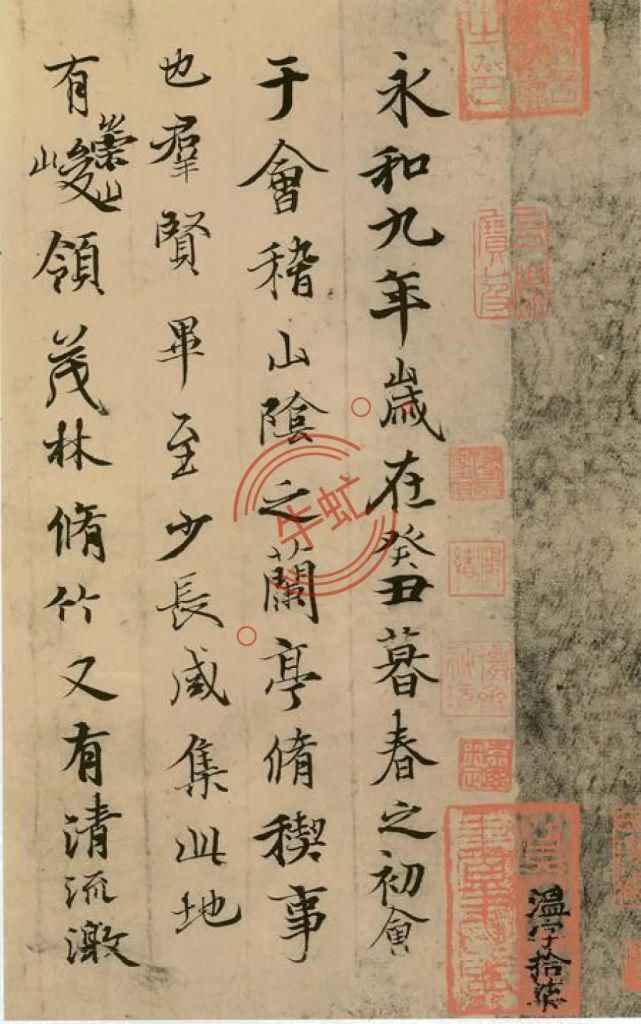 永和九年歲在癸丑暮春之初會
于會稽山陰之蘭亭脩稧事
也羣賢畢至少長咸集此地
有崇山峻領茂林脩竹又有清流激
牛虹